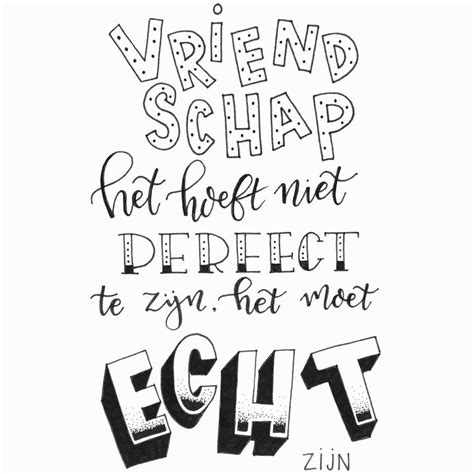 VRIEND
SCHAP
het hoeft niet
PERFECT
te zijn, het moet
ECHT
ZIJN